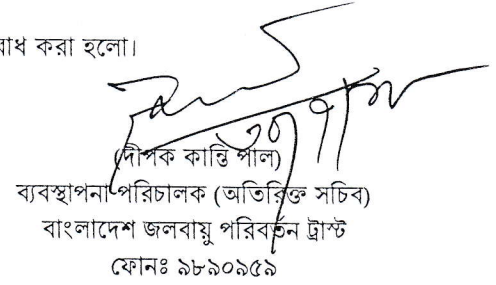 করা হলো।
(দীপক কান্তি পাল)
ব্যবস্থাপনা পরিচালক (অতিরিক্ত সচিব)
বাংলাদেশ জলবায়ু পরিবর্তন ট্রাস্ট
ফোনঃ ৯৮৯০৯৫৯